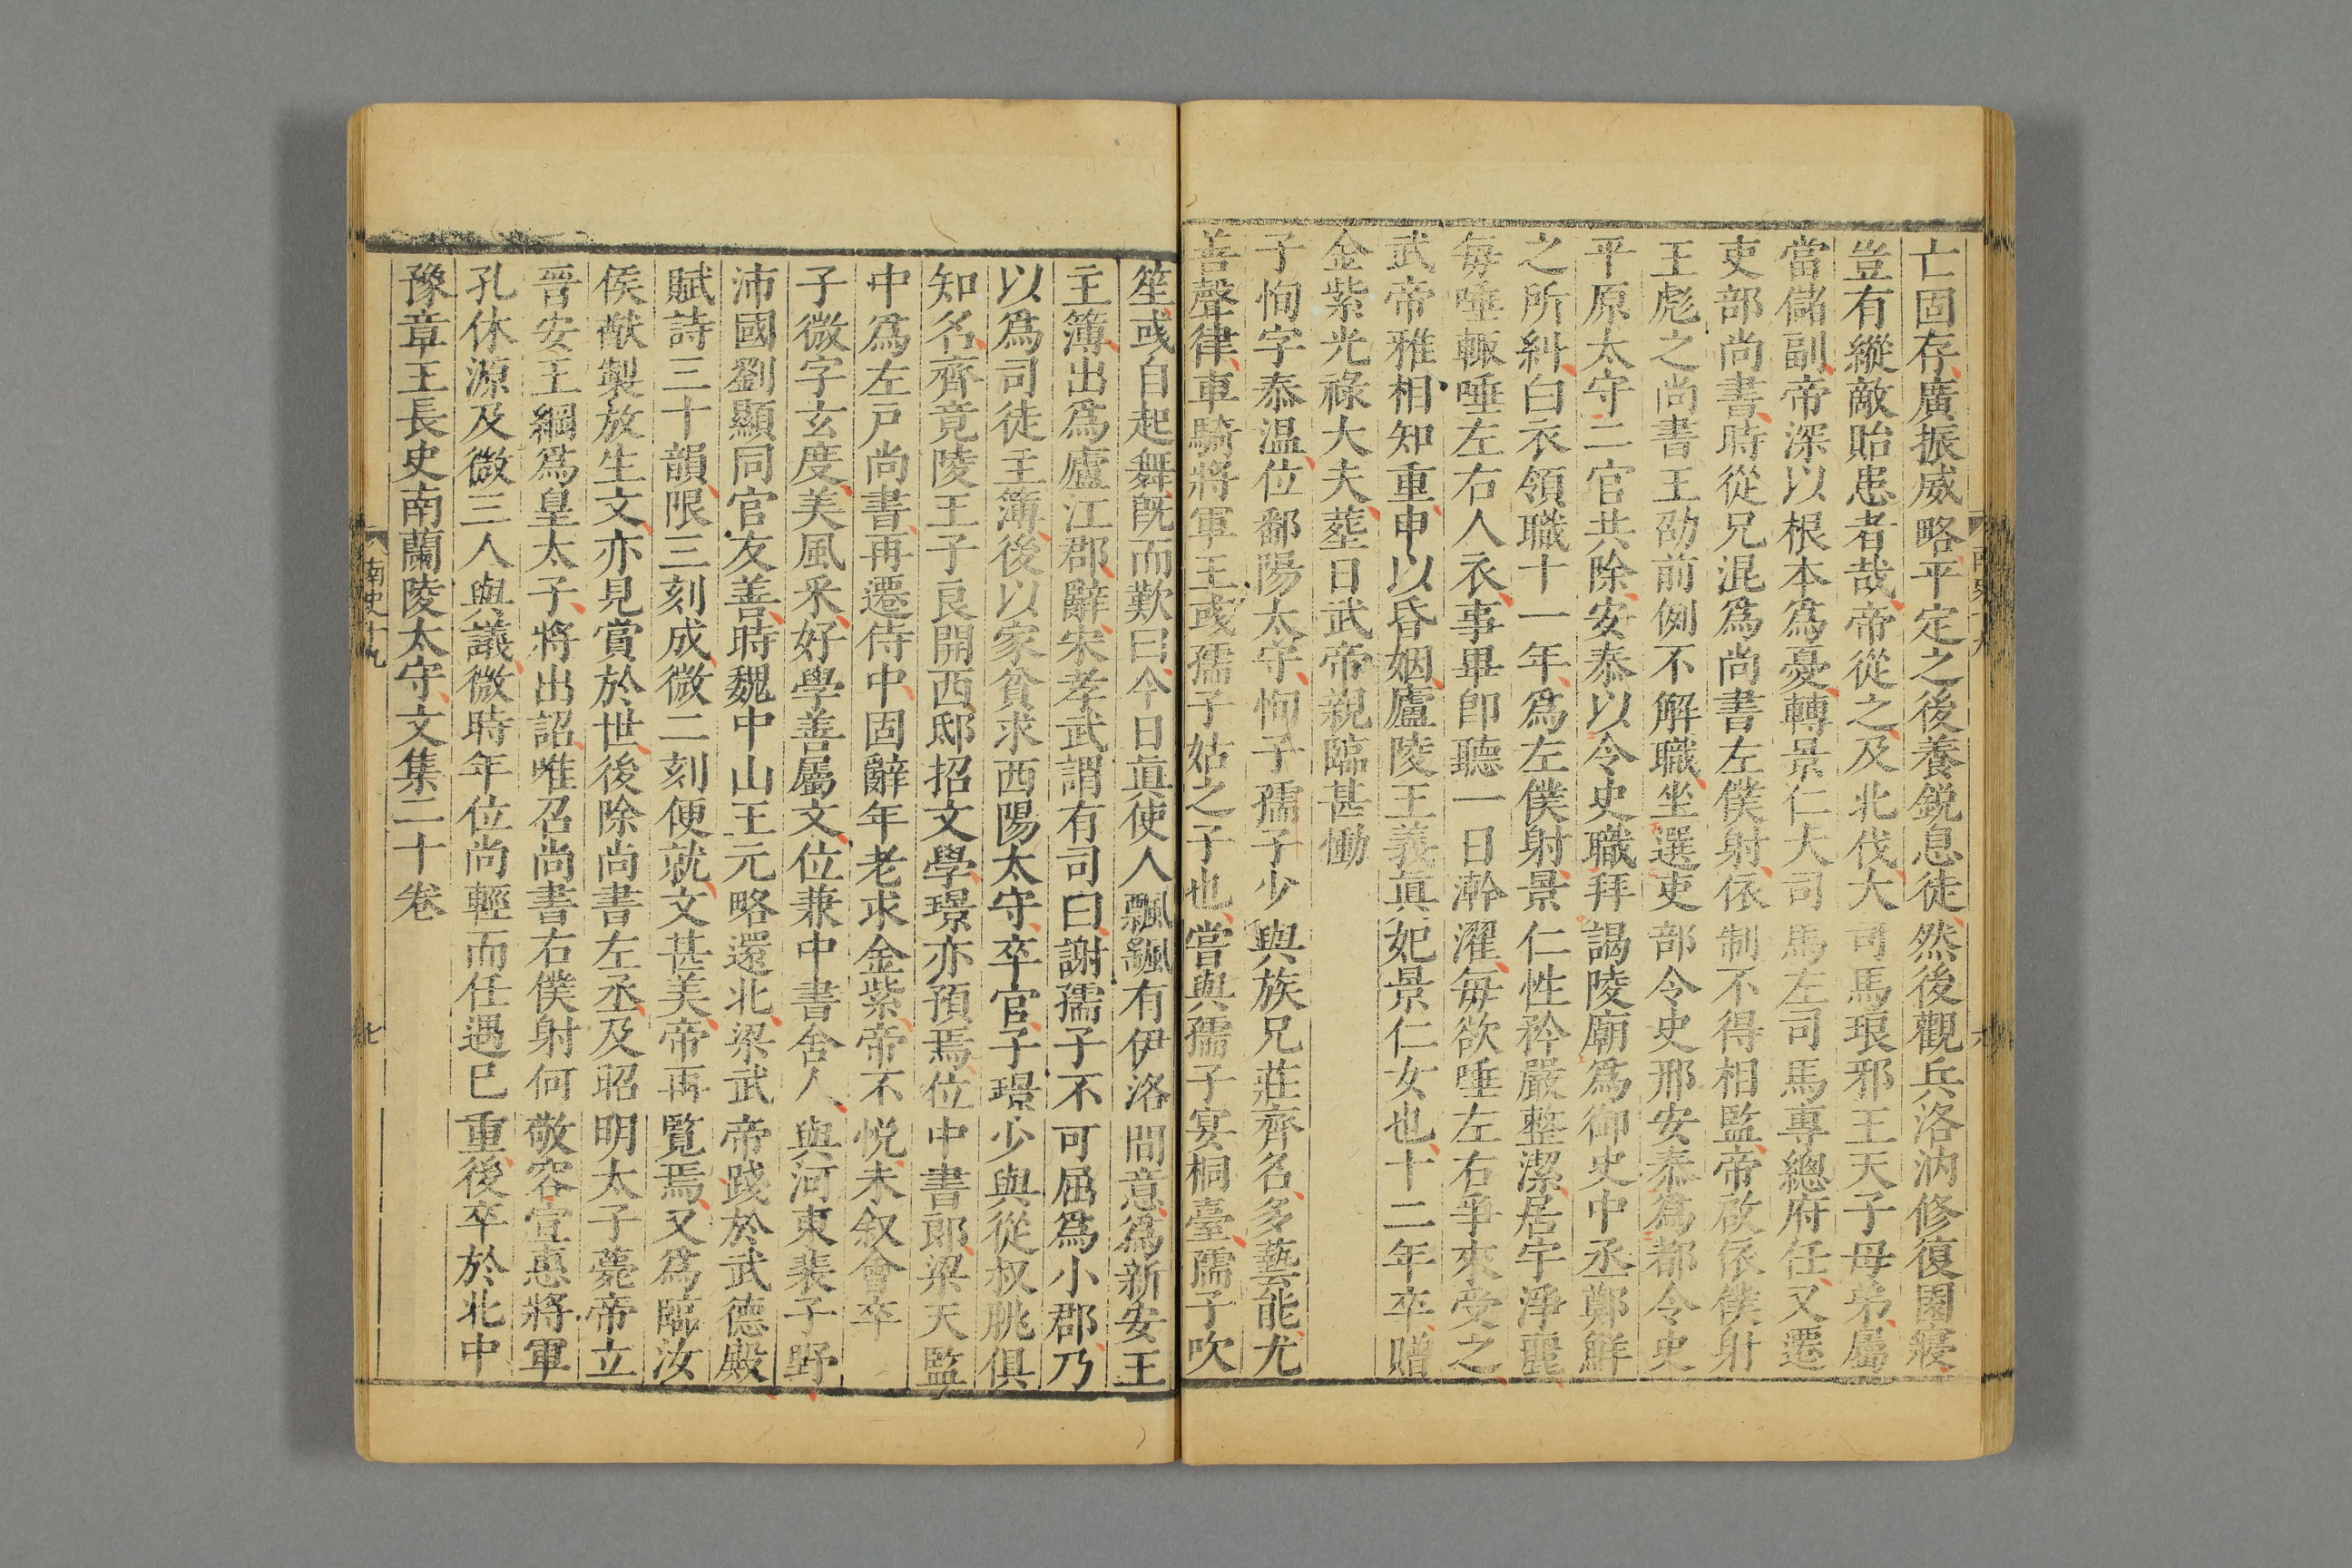 亡固存廣振威略平定之後養銳息徒然後觀兵洛汭修復園寢
豈有縱敵貽患者哉帝從之及北伐大司馬琅邪王天子母弟屬
當儲副帝深以根本為憂轉景仁大司馬左司馬專總府任又遷
吏部尚書時從兄混為尚書左僕射依制不得相監帝啟依僕射
王彪之尚書王劭前例不解職坐選吏部令史邢安泰為都令史
平原太守二官共除安泰以令史職拜謁陵廟為御史中丞鄭鮮
之所糾白衣領職十一年為左僕射景仁性矜嚴整潔居宇淨麗
每唾輙唾左右人衣事畢卽聽一日澣濯每欲唾左右爭來受之
武帝雅相知重申以昏姻廬陵王義眞妃景仁女也十二年卒贈
金紫光祿大夫葬日武帝親臨甚慟
子恂字泰温位鄱陽太守恂子孺子少與族兄莊齊名多藝能尤
善聲律車騎將軍王彧孺子姑之子也嘗與孺子宴桐臺孺子吹
笙彧自起舞旣而歎曰今日眞使人飄飄有伊洛間意為新安王
主簿出為廬江郡辭宋孝武謂有司曰謝孺子不可屈為小郡乃
以為司徒主簿後以家貧求西陽太守卒官子璟少與從叔朓俱
知名齊竟陵王子良開西邸招文學璟亦預焉位中書郎梁天監
中為左戸尚書再遷侍中固辭年老求金紫帝不悅未叙會卒
子微字玄度美風采好學善屬文位兼中書舍人與河東裴子野
沛國劉顯同官友善時魏中山王元略還北梁武帝踐於武德殿
賦詩三十韻限三刻成微二刻便就文甚美帝再覧焉又為臨汝
侯猷製放生文亦見賞於世後除尚書左丞及昭明太子薨帝立
晉安王綱為皇太子將出詔唯召尚書右僕射何敬容宣惠將軍
孔休源及微三人與議微時年位尚輕而任遇已重後卒於北中
豫章王長史南蘭陵太守文集二十卷
南史十九
七